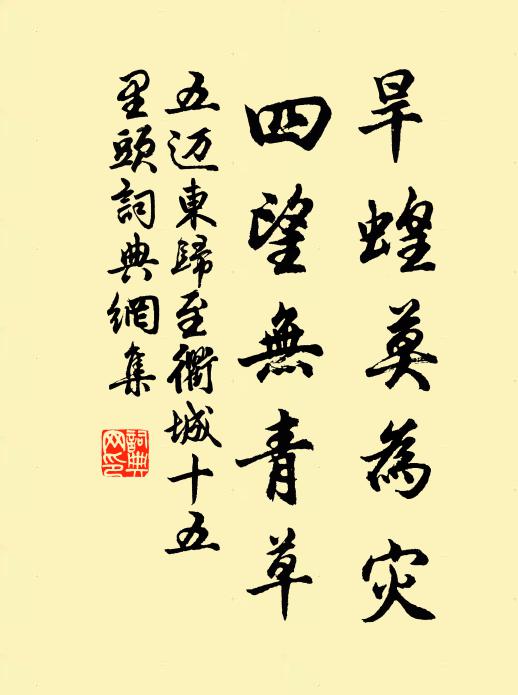 旱蝗莫為灾
四望無青草
五迈東歸至衢城十五
里頭詞典網集
詞典网印